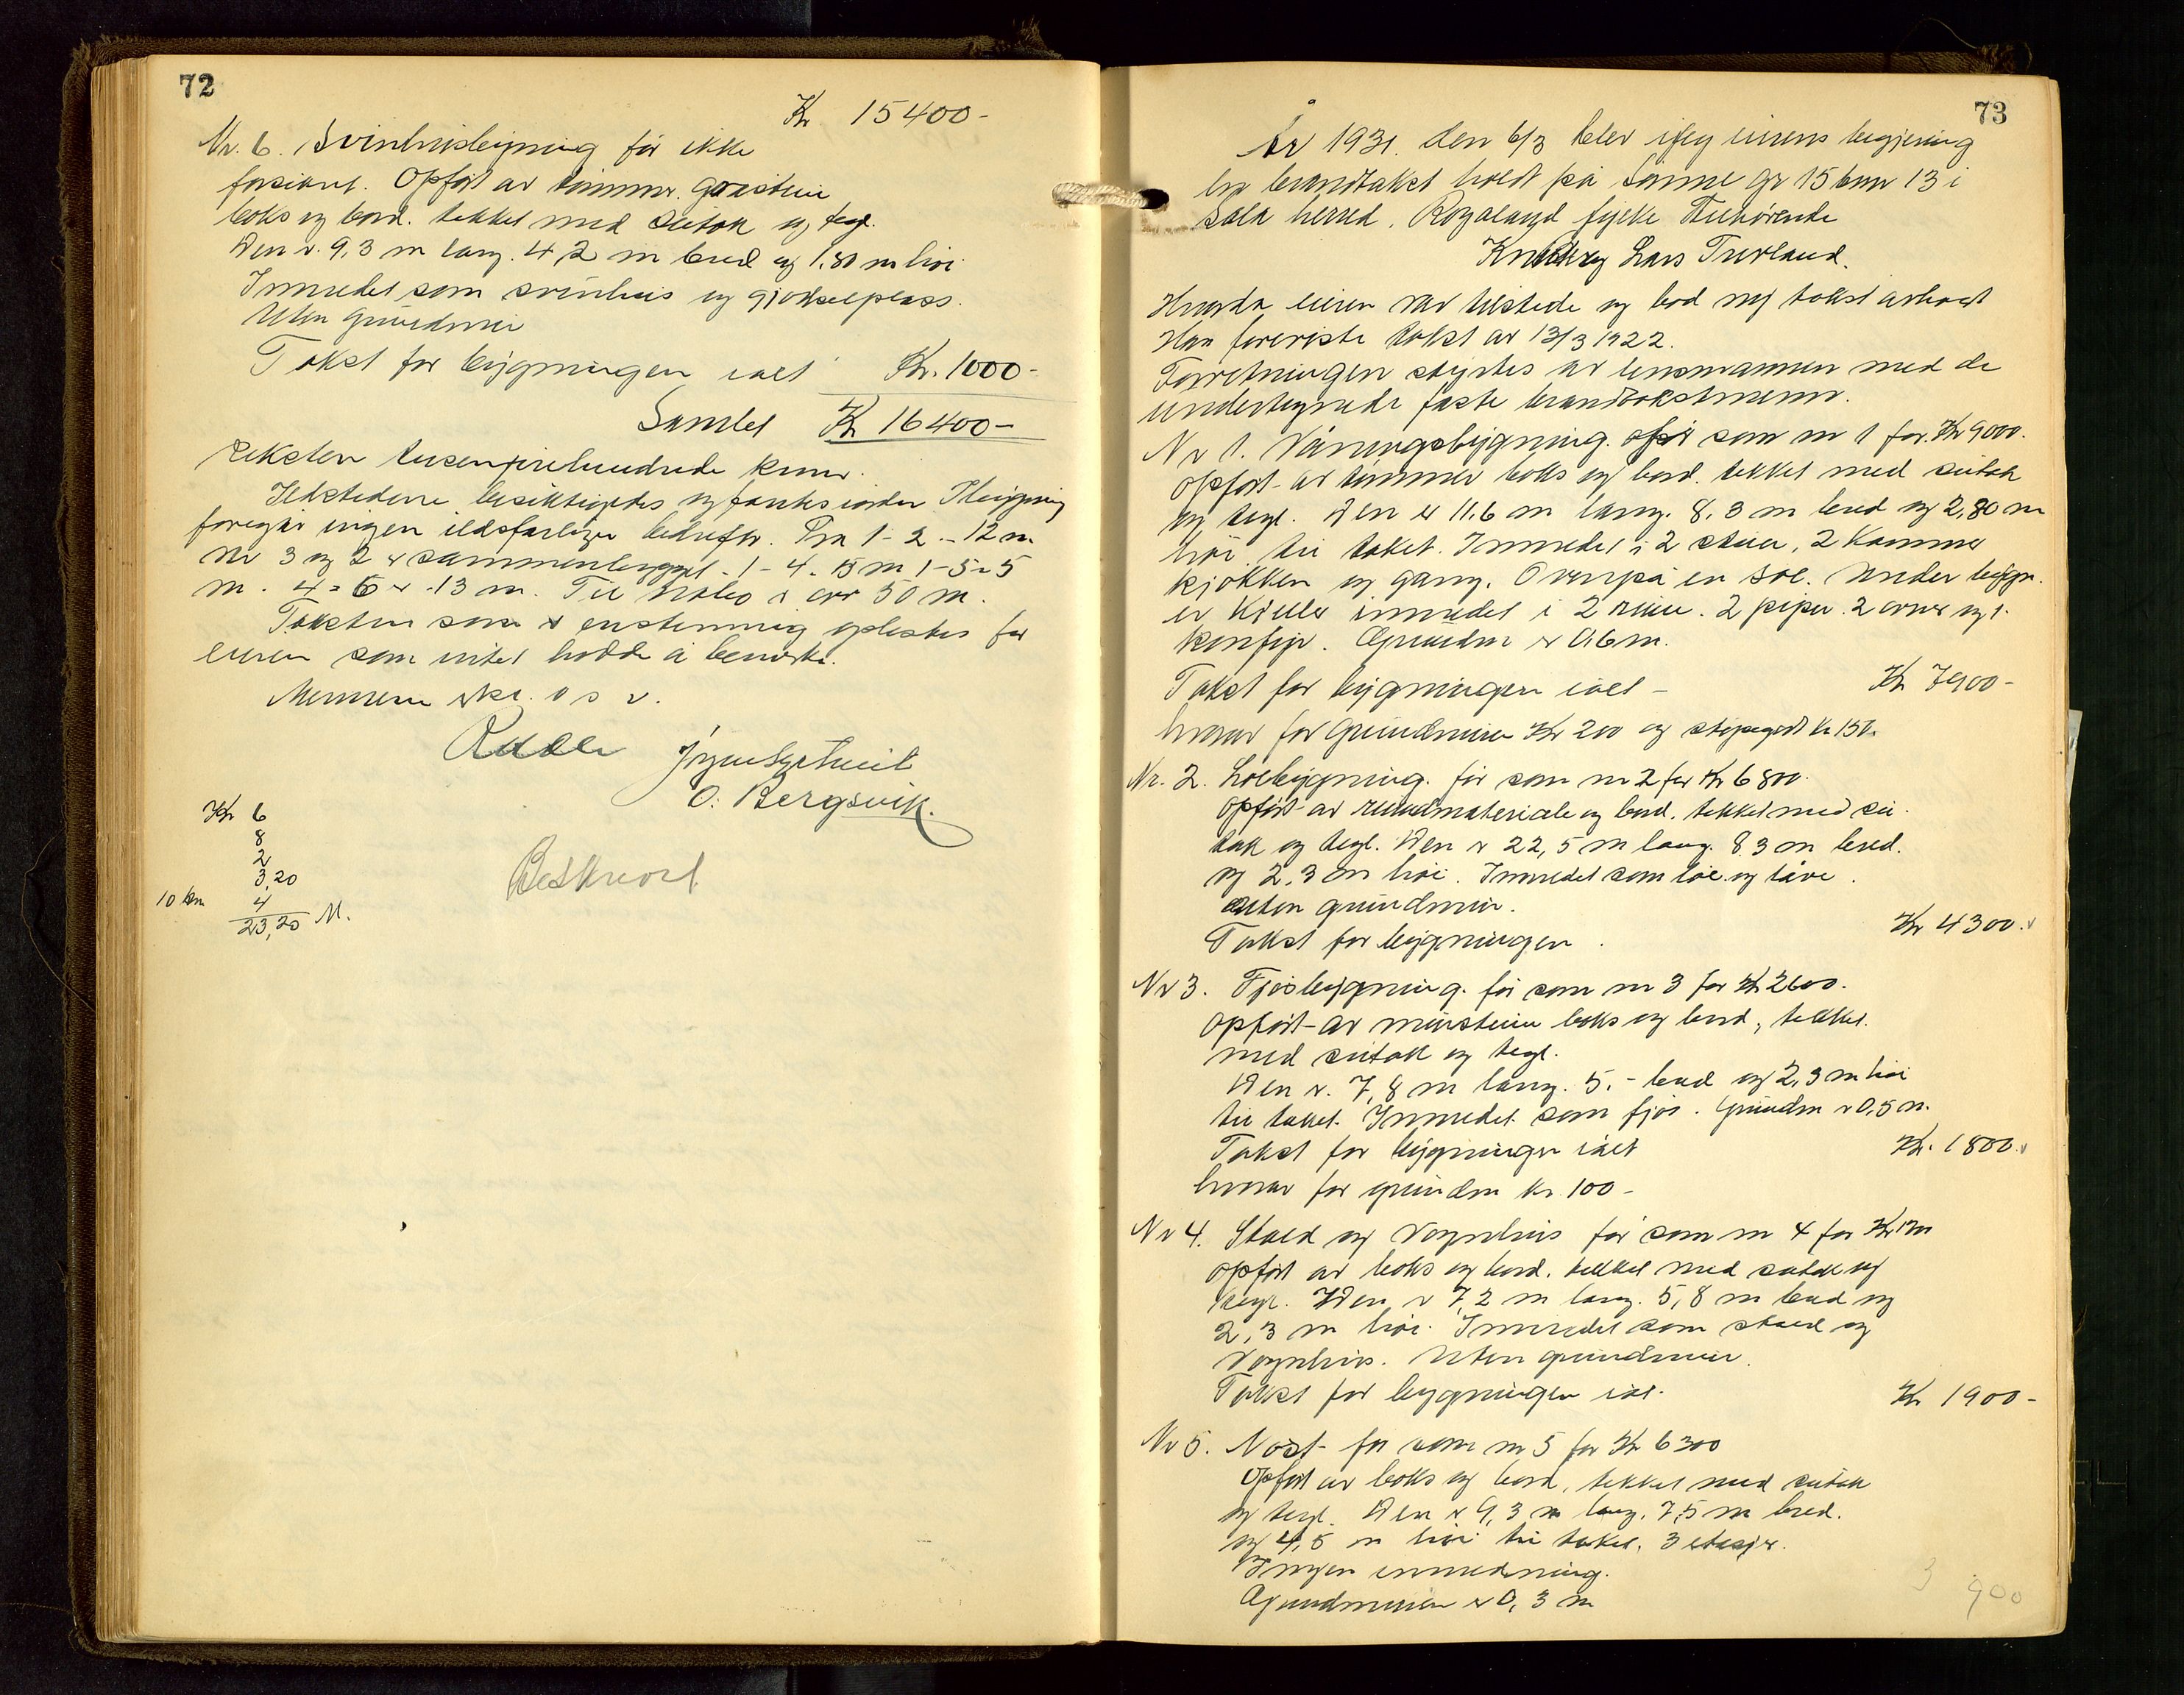 72
Kr 15400-
Nr. 6. Svinhusbygning før ikke
forsikret. Opført av tømmer. graastein
boks og bord. tekket med sutak og tegl.
Den er 9,3 m lang. 4,2 m bred og 1,80 m høi
Innredet som svinhus og gjødselplass.
Uten grundmur
Takst for bygningen ialt Kr. 1000-
Samlet Kr 16400-
Seksten tusenfirehundrede kroner.
Ildstedene besiktigedes og fantes iorden I bygning
foregår ingen ildsfarlige bedrifter. Fra 1-2 - 12 m.
Nr 3 og 2 er sammenbygget. 1-4. 15 m 1-5 - 5
m. 4-6 er 13 m. Til nabo er over 50 m.
Taksten som er enstemmig oplestes for
eieren som intet hadde å bemerke.
Mennene erkl. o s v.
O. Bergsvik.
Kr 6
8
2
3,20
10 km 4
23,20 M.
Beskrevet
73
År 1931. den 6/3 blev ifølg eierens begjering
brandtakst holdt på Sømme gr 15 bnr 13 i
Sola herred, Rogaland fylke Tilhørende
Knut og Lars Tjørland.
eieren var tilstede og bad ny takst avholdt
Han foreviste takst av 13/3 1922.
Forretningen styrtes av lensmannen med de
undertegnede faste brandtakstmenn.
Nr 1. Våningsbygning. før som nr 1 for Kr 9000.
Opført av tømmer boks og bord. tekket med sutak
og tegl. Den er 11,6 m lang. 8,3 m bred og 2,80 m
høi til taket. Innredet i 2 stuer, 2 kammer
kjøkken og gang. Ovenpå en sal. Under bygn.
er kjeller innredet i 2 rum. 2 piper. 2 ovner og 1
komfyr. Grundm er 0,6 m.
Takst for bygningen ialt - Kr 7900-
hvorav for grundmuren Kr 200 og Kr 150.
Nr. 2. Løebygning. før som nr 2 for Kr 6800.
Opført av rundmateriale og bord. tekket med su-
tak og tegl. Den er 22,5 m lang. 8,3 m bred.
og 2,3 m høi. Innredet som løe og låve.
uten grundmur.
Takst for bygningen. Kr 4300.
Nr 3. Fjøsbygning. før som nr 3 for Kr 2600.
Opført av murstein boks og bord, tekket.
med sutak og tegl.
Den er 7,8 m lang. 5,- bred og 2,3 m høi
til taket. Innredet som fjøs. Grundm er 0,5 m.
Takst for bygningen ialt Kr. 1800.
hvorav for grundm kr. 100-
Nr 4. Stald og Vognhus før som nr 4 for Kr
Opført av boks og bord. tekket med sutak og
tegl. Den er 7,2 m lang. 5,8 m bred og
2,3 m høi. Innredet som stald og
Vognhus. Uten grundmur.
Takst for bygningen ialt. Kr 1900-
Nr 5. Nøst før som nr 5 for Kr 6300
Opført av boks og bord, tekket med sutak
og tegl. Den er 9,3 m lang. 7,5 m bred.
og 4,5 m høi til taket. 3 etasjer.
Ingen innredning.
Grundmuren er 0,3 m
3 900